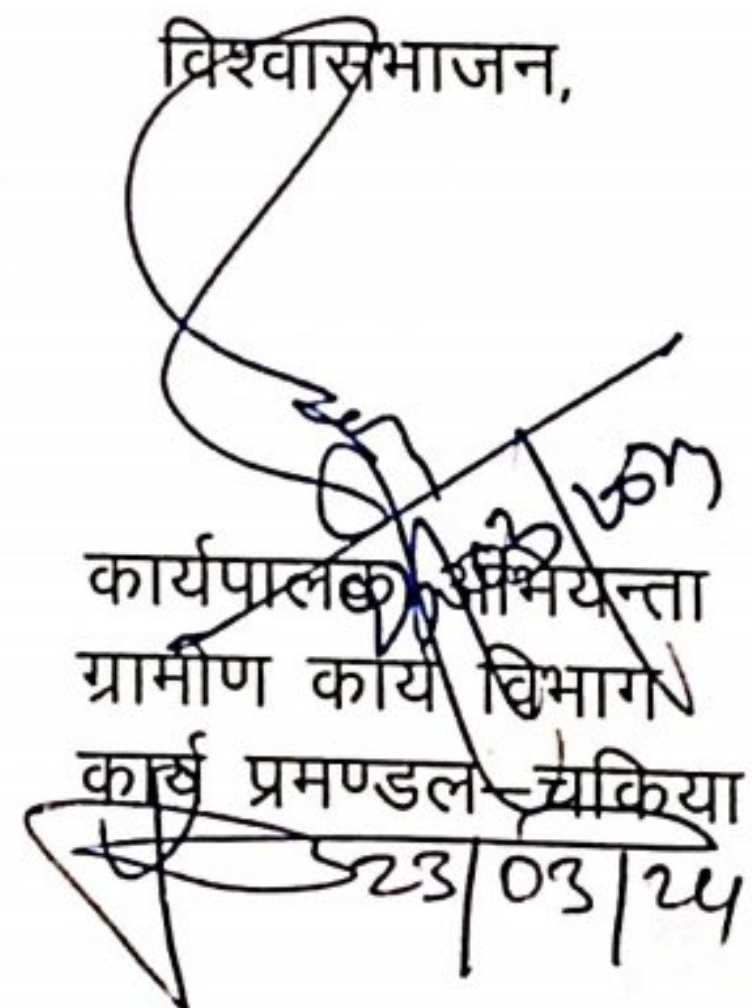 विश्वासभाजन,
कार्यपालक अभियन्ता
ग्रामीण कार्य विभाग
कार्य प्रमण्डल-चकिया
23/03/24